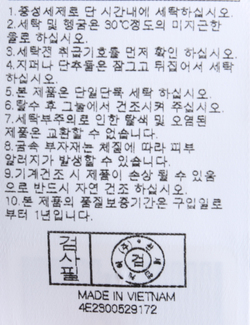 1.중성세제로 단 시간내에 세탁하십시오.
2.세탁 및 헹굼은 30℃정도의 미지근한
물로 하십시오.
3.세탁전 취급기호를 먼저 확인 하십시오.
4.지퍼나 단추등은 잠그고 뒤집어서 세탁
하십시오.
5.본 제품은 단일단독 세탁 하십시오.
6.탈수 후 그늘에서 건조시켜 주십시오.
7.세탁부주의로 인한 탈색 및 오염된
제품은 교환할 수 없습니다.
8.금속 부자재는 체질에 따라 피부
알러지가 발생할 수 있습니다.
9.기계건조 시 제품이 손상 될 수 있음
으로 반드시 자연 건조 하십시오.
10.본 제품의 품질보증기간은 구입일로
부터 1년입니다.
검사필
검
MADE IN VIETNAM
4E2300529172